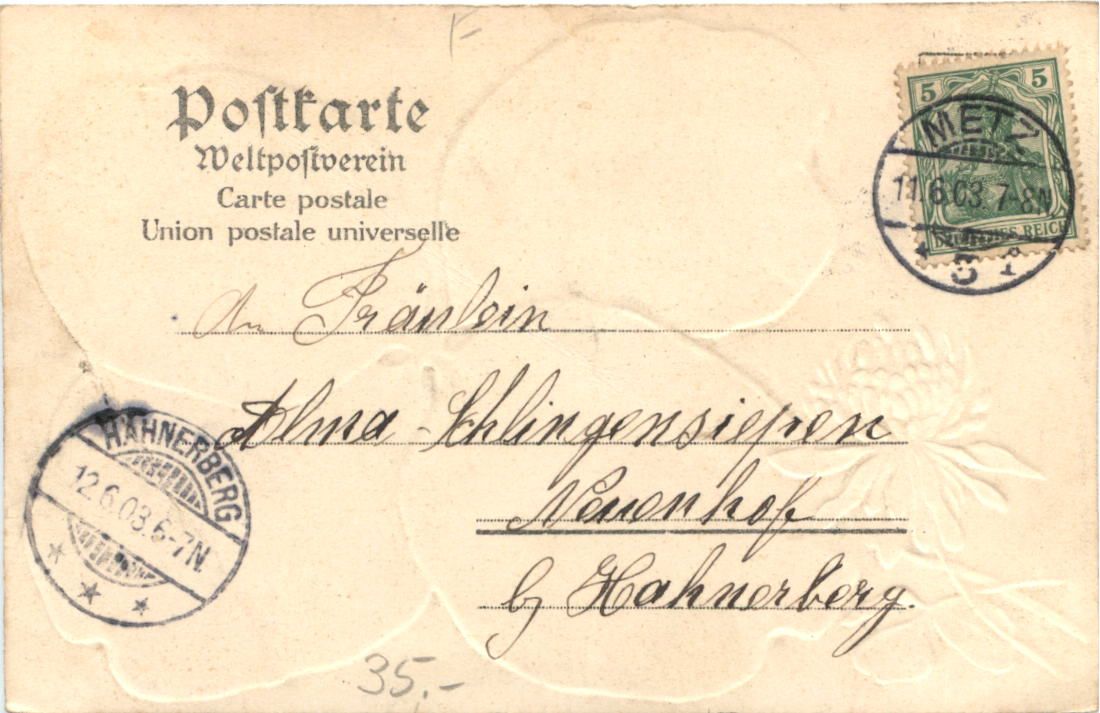 Postkarte
Weltpostverein
Carte postale
Union postale universelle
5 5
DEUTSCHES REICH
METZ
11.6.03. 7-8N
An Fräulein
Alma Schlingensiepen
Neuenhof
b/ Hahnerberg.
HAHNERBERG
12.6.03. 6-7N
35.-